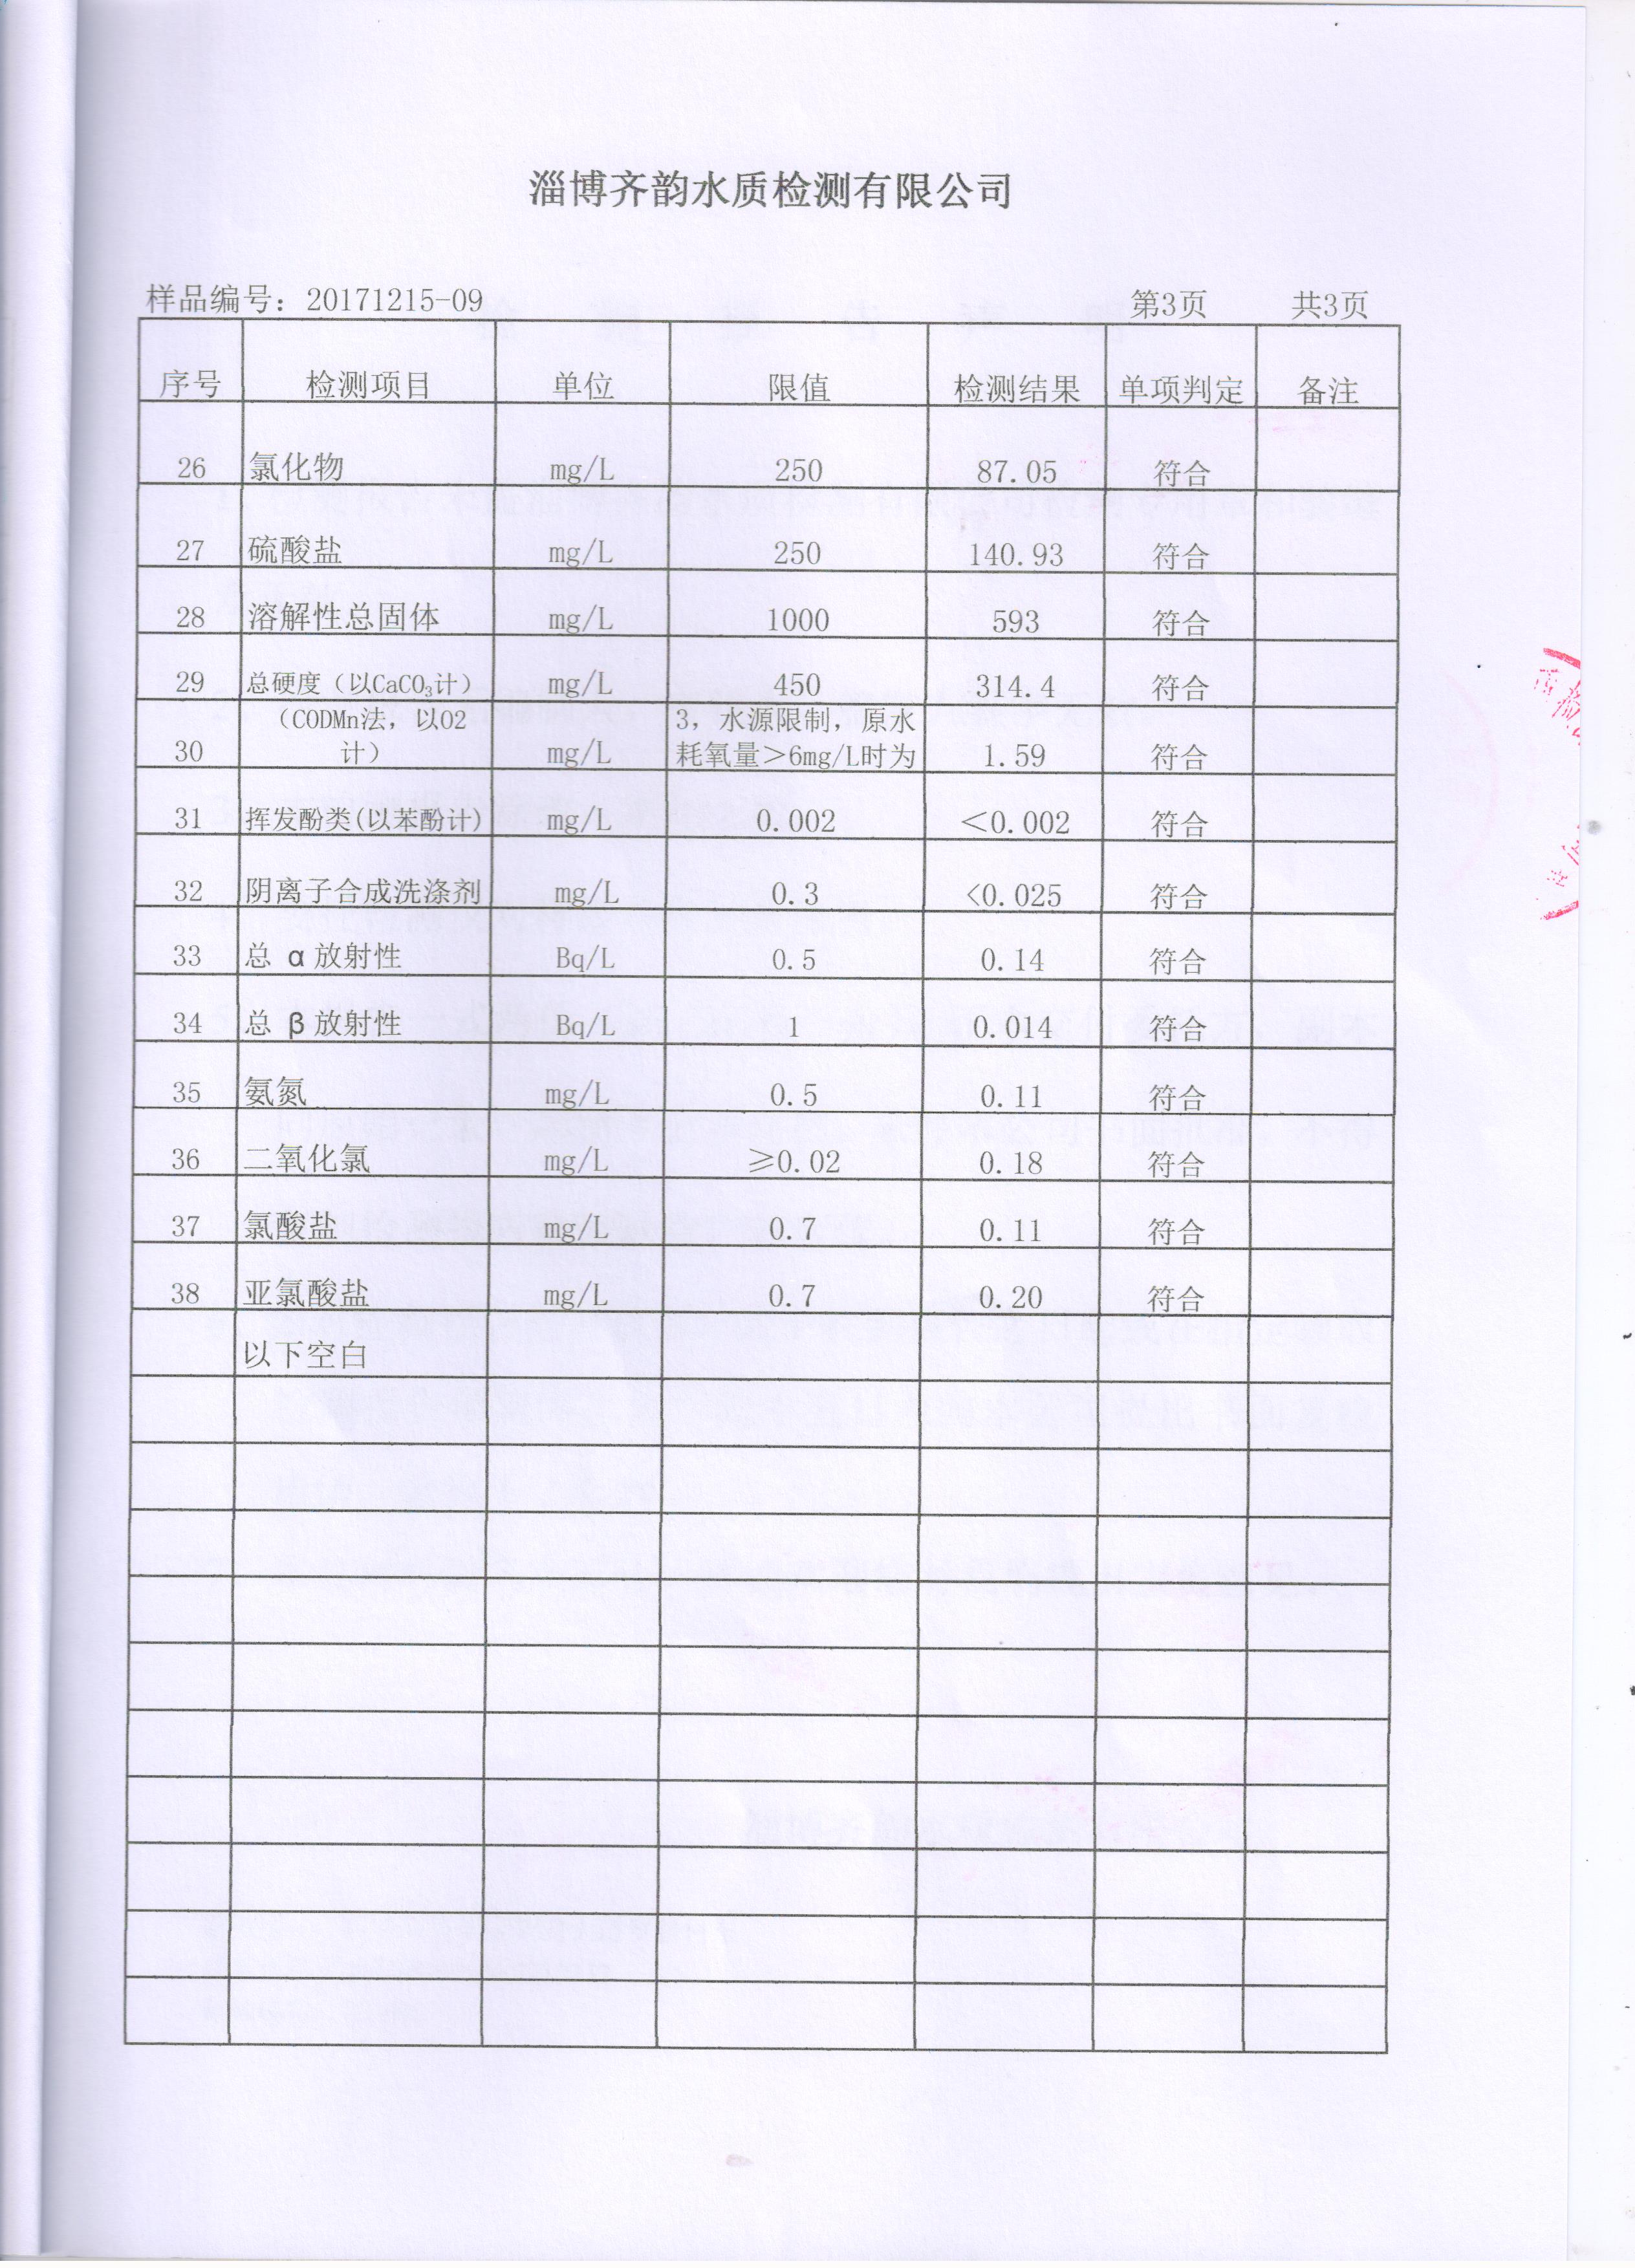 淄博齐韵水质检测有限公司
样品编号：20171215-09 第3页 共3页
序号 检测项目 单位 限值 检测结果 单项判定 备注
26 氯化物 mg/L 250 87.05 符合
27 硫酸盐 mg/L 250 140.93 符合
28 溶解性总固体 mg/L 1000 593 符合
29 总硬度（以CaCO₃计） mg/L 450 314.4 符合
（CODMn法，以O2 3，水源限制，原水
30 计） mg/L 耗氧量＞6mg/L时为 1.59 符合
31 挥发酚类(以苯酚计) mg/L 0.002 ＜0.002 符合
32 阴离子合成洗涤剂 mg/L 0.3 <0.025 符合
33 总 α 放射性 Bq/L 0.5 0.14 符合
34 总 β 放射性 Bq/L 1 0.014 符合
35 氨氮 mg/L 0.5 0.11 符合
36 二氧化氯 mg/L ≥0.02 0.18 符合
37 氯酸盐 mg/L 0.7 0.11 符合
38 亚氯酸盐 mg/L 0.7 0.20 符合
以下空白